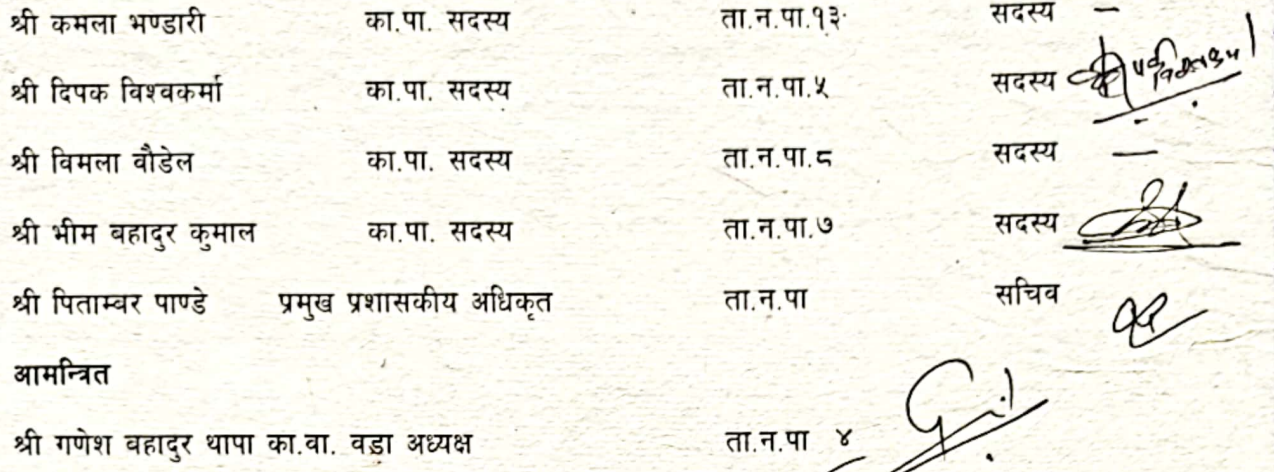 श्री कमला भण्डारी का.पा. सदस्य ता.न.पा.१३ सदस्य —
श्री दिपक विश्वकर्मा का.पा. सदस्य ता.न.पा.५ सदस्य
श्री विमला वौडेल का.पा. सदस्य ता.न.पा.८ सदस्य —
श्री भीम बहादुर कुमाल का.पा. सदस्य ता.न.पा.७ सदस्य
श्री पिताम्वर पाण्डे प्रमुख प्रशासकीय अधिकृत ता.न.पा सचिव
आमन्त्रित
श्री गणेश वहादुर थापा का.वा. वडा अध्यक्ष ता.न.पा ४